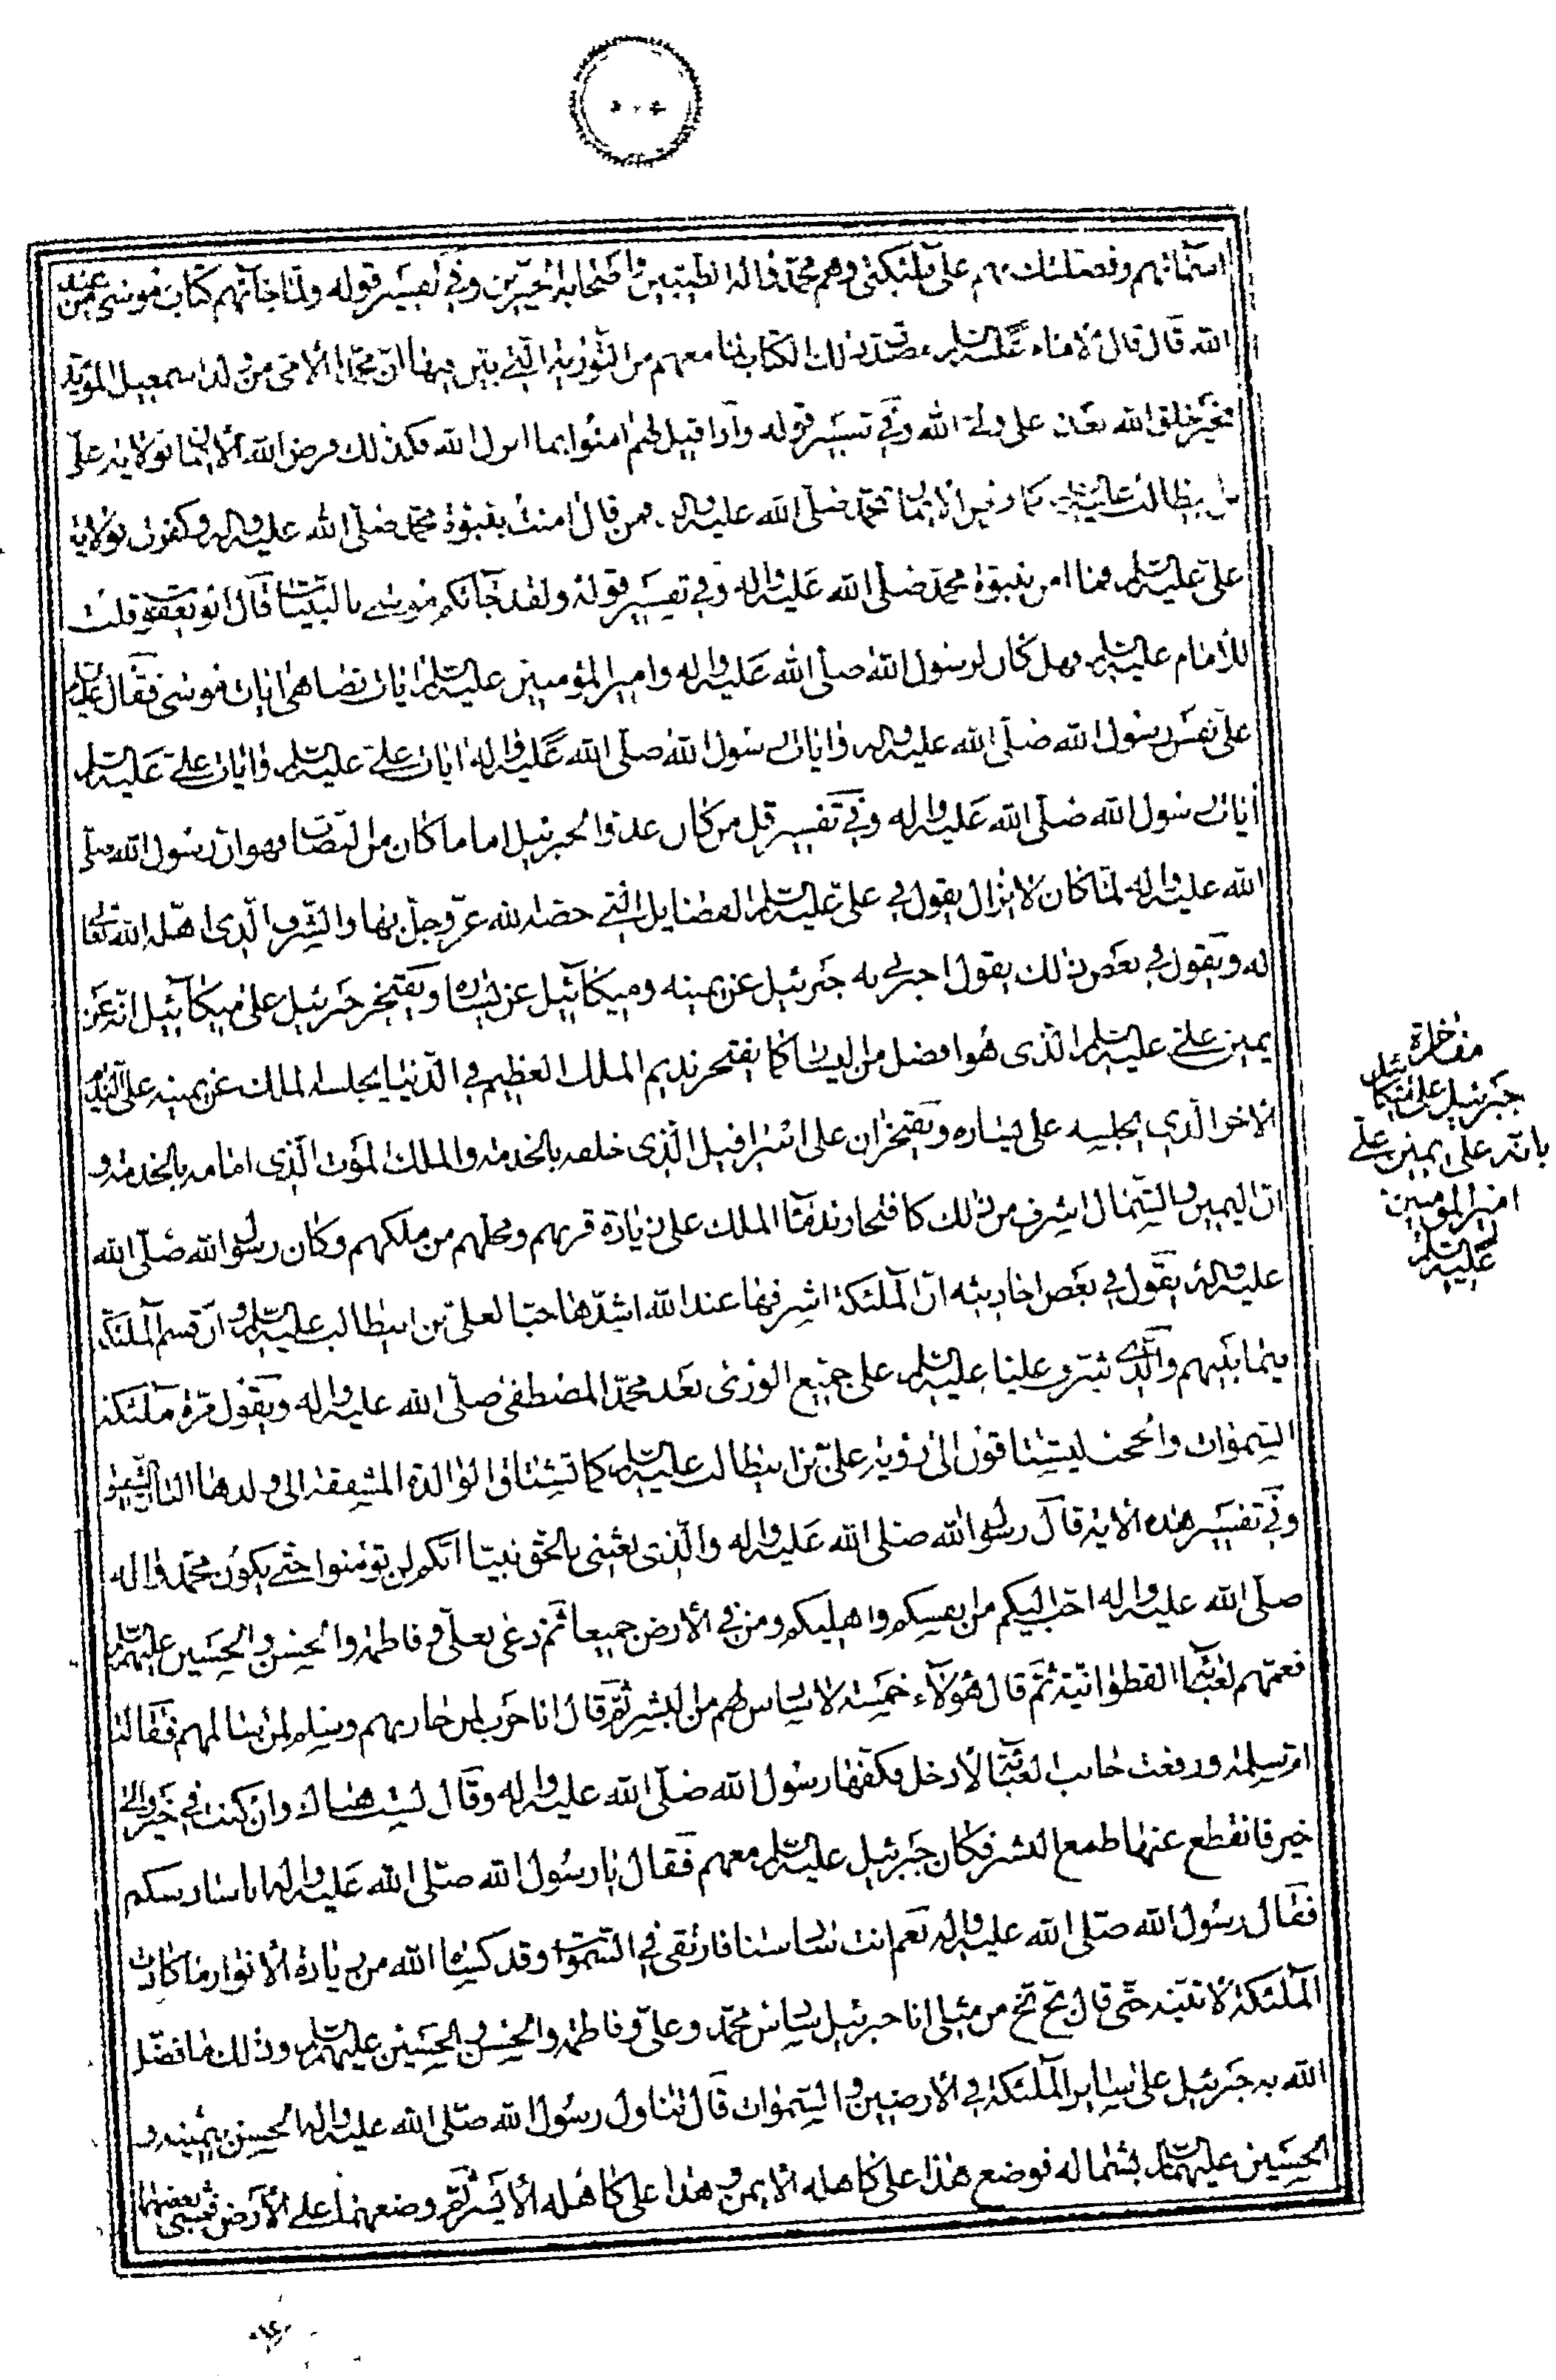 وفضلتك بهم على ملئكتى وهم محمد واله الطيبين واصحابه الخيرين وفي تفسير قوله ولما جائهم كتاب من عند
الله قال قال الامام عليه السلم مصدق ذلك الكتاب لما معهم من التورية التي بين فيها ان محمدا الامى من ولد اسمعيل المؤيد
بخير خلق الله بعده على ولى الله وفي تفسير قوله واذا قيل لهم امنوا بما انزل الله فكذلك فرض الله الايمان بولاية على
بن ابيطالب عليه السلم كما فرض الايمان بمحمد صلى الله عليه واله فمن قال امنت بنبوة محمد صلى الله عليه واله وكفرت بولاية
على عليه السلم فما امن بنبوة محمد صلى الله عليه واله وفي تفسير قوله ولقد جائكم موسى بالبينات قال ابو يعقوب قلت
للامام عليه السلم فهل كان لرسول الله صلى الله عليه واله وامير المؤمنين عليه السلم ايات تضاهى ايات موسى فقال عليه السلم
على نفس رسول الله صلى الله عليه واله وايات رسول الله صلى الله عليه واله ايات على عليه السلم وايات على عليه السلم
ايات رسول الله صلى الله عليه واله وفي تفسير قل من كان عدوا لجبرئيل اما ما كان من النصاب فهو ان رسول الله صلى
الله عليه واله لما كان لا يزال يقول في على عليه السلم الفضايل التي خصه الله عز وجل بها والشرف الذى اهله الله تعالى
له ويقول في بعض ذلك يقول اخبرني به جبرئيل عن يمينه وميكائيل عن يساره ويفتخر جبرئيل على ميكائيل انه عن
يمين على عليه السلم الذى هو افضل من اليسار كما يفتخر نديم الملك العظيم في الدنيا يجلسه الملك عن يمينه على النديم
الاخر الذى يجلسه على يساره ويفتخران على اسرافيل الذى خلفه بالخدمة والملك الموت الذى امامه بالخدمة و
ان اليمين والشمال اشرف من ذلك كافتخار ندماء الملك على زيادة قربهم ومحلهم من ملكهم وكان رسول الله صلى الله
عليه واله يقول في بعض احاديثه ان الملئكة اشرفها عند الله اشدها حبا لعلى بن ابيطالب عليه السلم وان قسم الملئكة
فيما بينهم والذى شرف عليا عليه السلم على جميع الورى بعد محمد المصطفى صلى الله عليه واله ويقول مرة ملئكة
السموات والحجب ليشتاقون الى رؤية على بن ابيطالب عليه السلم كما تشتاق الوالدة المشفقة الى ولدها البار الشفيق
وفي تفسير هذه الاية قال رسول الله صلى الله عليه واله والذى بعثنى بالحق نبيا انكم لن تؤمنوا حتى يكون محمد واله
صلى الله عليه واله احب اليكم من انفسكم واهليكم ومن في الارض جميعا ثم دعى بعلى وفاطمة والحسن والحسين عليهم السلم
فعمهم بعبائه القطوانية ثم قال هؤلاء خمسة لا سادس لهم من البشر ثم قال انا حرب لمن حاربهم وسلم لمن سالمهم فقالت
ام سلمة ورفعت جانب العباء لادخل فكفها رسول الله صلى الله عليه واله وقال لست هناك وان كنت في خير والى
خير فانقطع عنها طمع البشر فكان جبرئيل عليه السلم معهم فقال يا رسول الله صلى الله عليه واله انا سادسكم
فقال رسول الله صلى الله عليه واله نعم انت سادسنا فارتقى في السموات وقد كساه الله من زيادة الانوار ما كادت
الملئكة لا تبينه حتى قال بخ بخ من مثلى انا جبرئيل سادس محمد وعلى وفاطمة والحسن والحسين عليهم السلم وذلك ما فضل
الله به جبرئيل على ساير الملئكة في الارضين والسموات قال تناول رسول الله صلى الله عليه واله الحسن بيمينه و
الحسين عليهما السلم بشماله فوضع هذا على كاهله الايمن وهذا على كاهله الايسر ثم وضعهما على الارض فمشى بعضهما
مفاخرة
جبرئيل على ميكائيل
بانه على يمين على
امير المؤمنين
عليه السلم